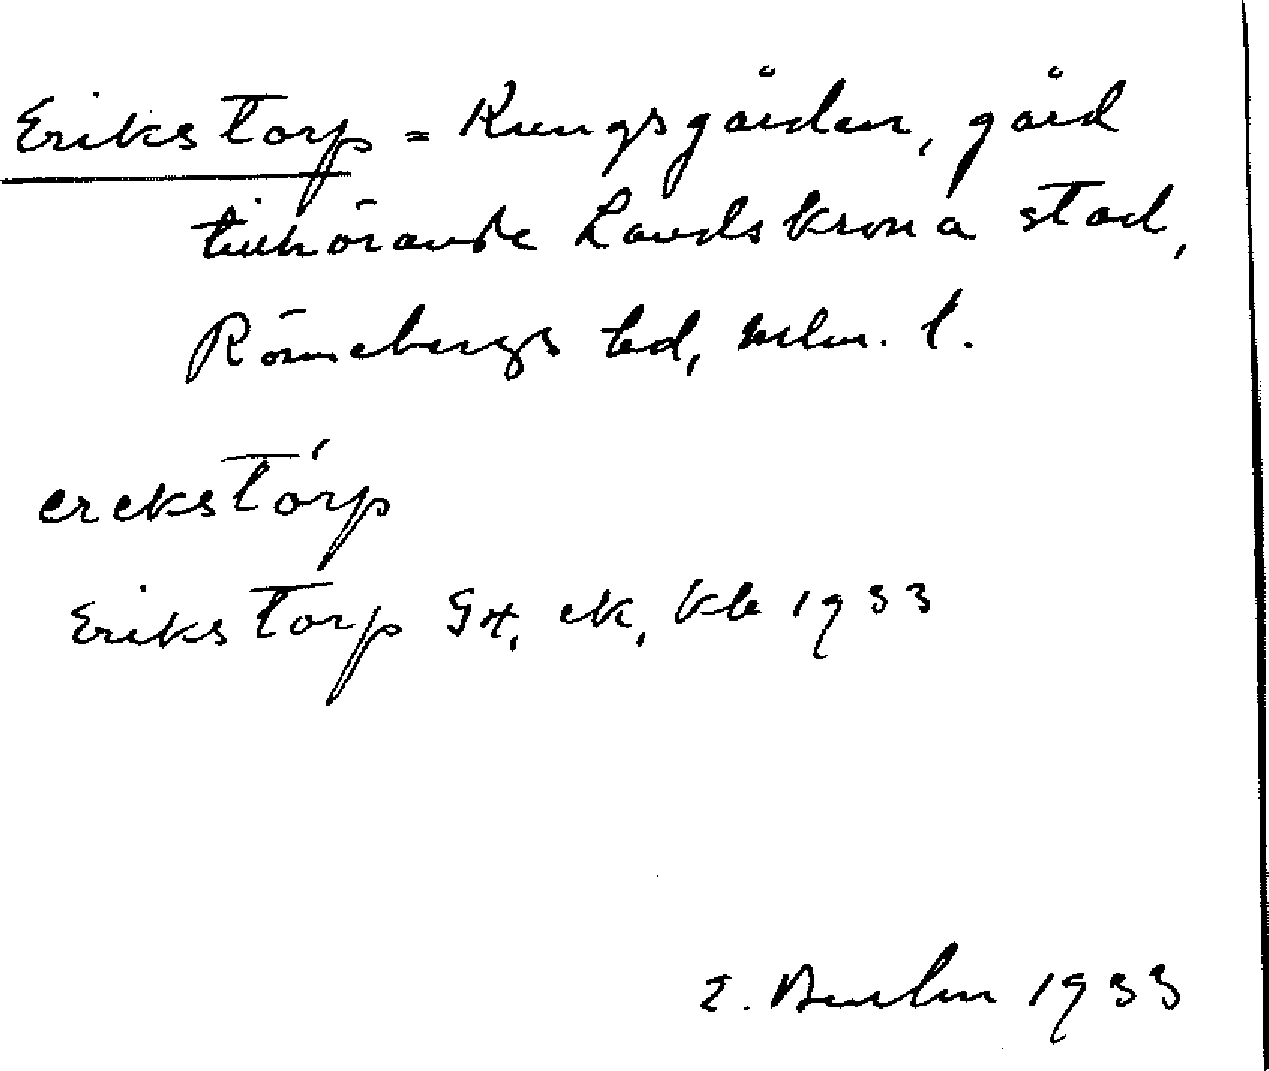 Erikstorp = Kungsgården, gård
tillhörande Landskrona stad,
Rönnebergs hd, Mlm. l.
erekstórp
Erikstorp Gk, ek, kb 1933
E. 1933